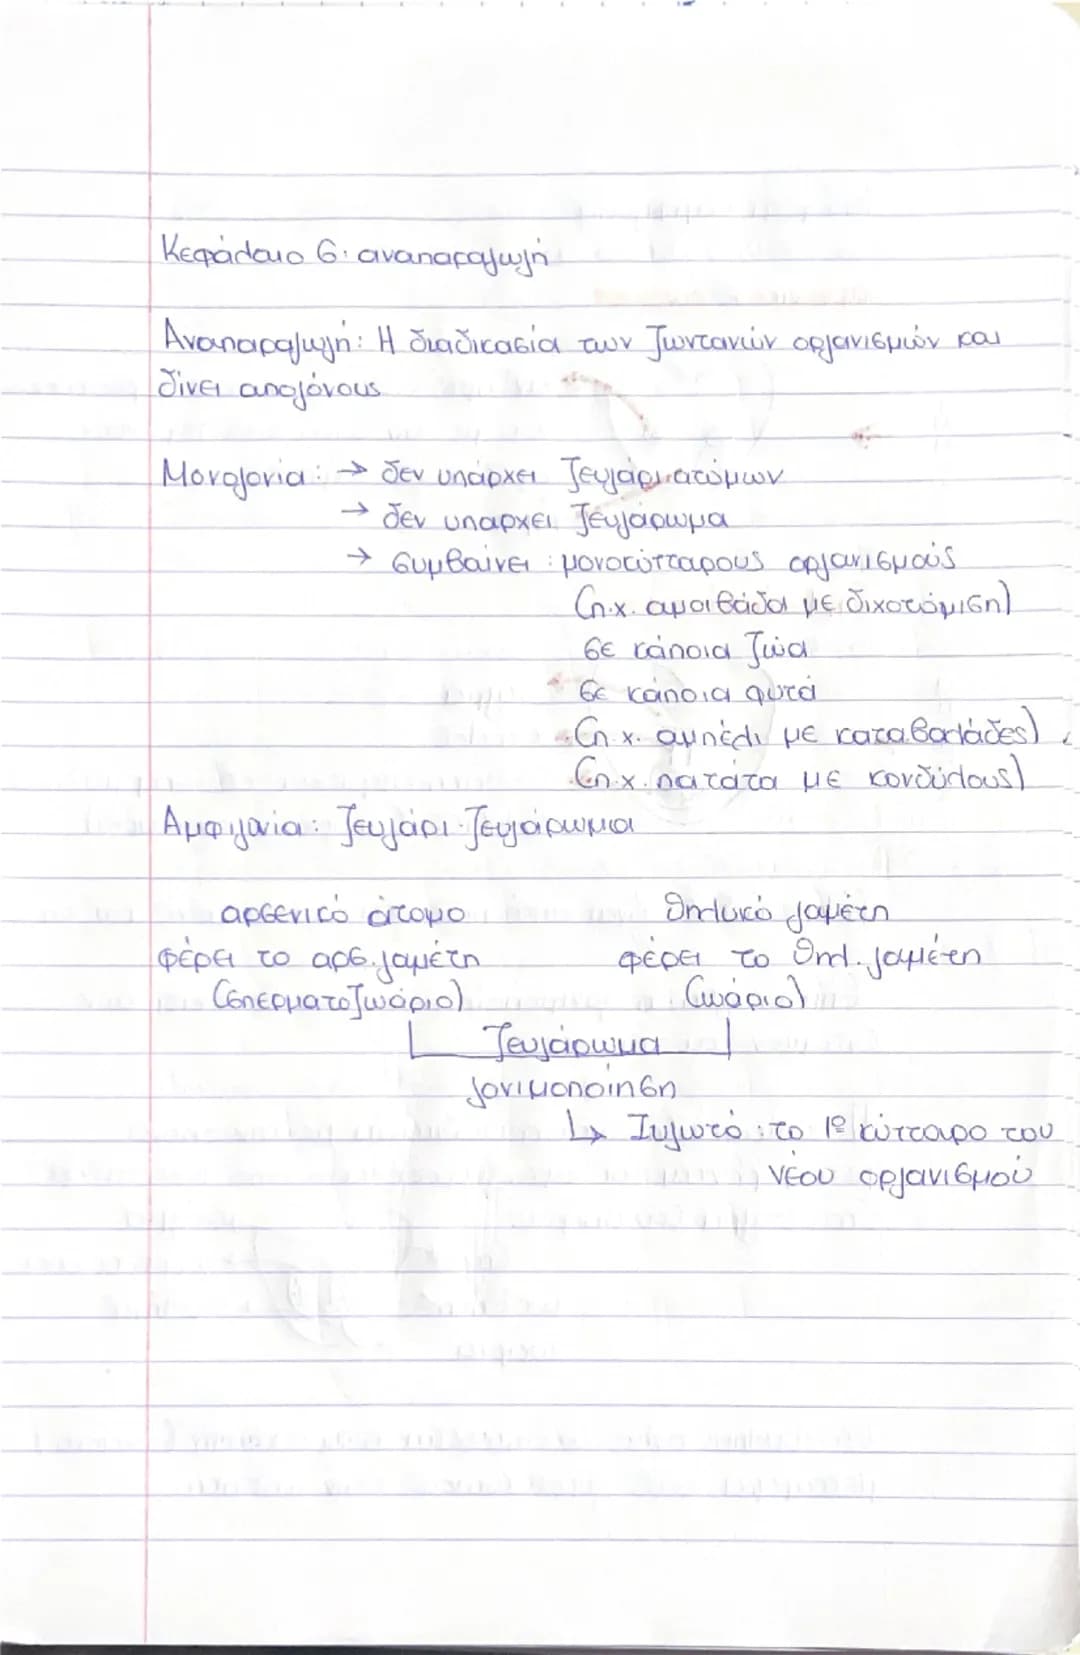 Κεφάλαιο 6: αναπαραγωγή
Αναπαραγωγή: Η διαδικασία των ζωντανών οργανισμών και
δίνει απογόνους
Μονογονία: → δεν υπάρχει ζευγάρι ατόμων
→ δεν υπαρχει ζευγάρωμα
→ συμβαίνει: μονοκύτταρους οργανισμούς
(π.χ. αμοιβάδα με διχοτόμιση)
σε κάποια ζώα
σε κάποια φυτά
(π.χ. αμπέλι με καταβολάδες)
(π.χ. πατάτα με κονδύλους)
Αμφιγονία: ζευγάρι-ζευγάρωμα
αρσενικό άτομο θηλυκό γαμέτη
φέρει το αρσ. γαμέτη φέρει το θηλ. γαμέτη
(σπερματοζωάριο) (ωάριο)
ζευγάρωμα
γονιμοποίηση
↳ Ζυγωτό: το 1º κύτταρο του
νέου οργανισμού